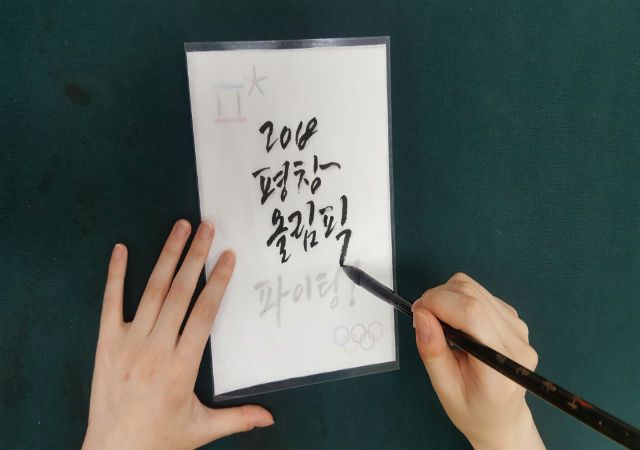 2018
평창
올림픽
파이팅!